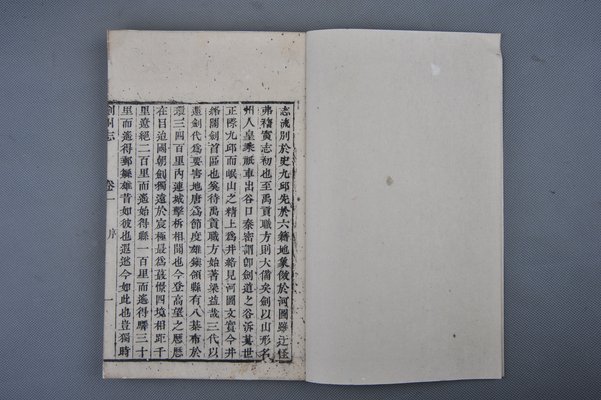 志流別於史九邱先於六籍地象倣於河圖舉江怪
弗稽實志初也至禹貢職方則大備矣劍以山形名
州人皇乘祇車出谷口秦密謂卽劍道之谷泝其世
正際九邱而岷山之精上爲井絡見河圖文實今井
絡圖劍首區也奚待禹貢職方始著梁益哉三代以
還劍代爲要害地唐爲節度雄鎮領縣有八棊布於
環三四百里內連城擊柝相聞也今登高望之歷歷
在目迨國朝劍獨遠於宸極最爲荒僿四境相距千
里遼絕二百里而遙始得縣一百里而遙得驛三十
里而遙得郵繇雄昔如彼也遐邈今如此也豈獨時
劍州志 卷一 序 一